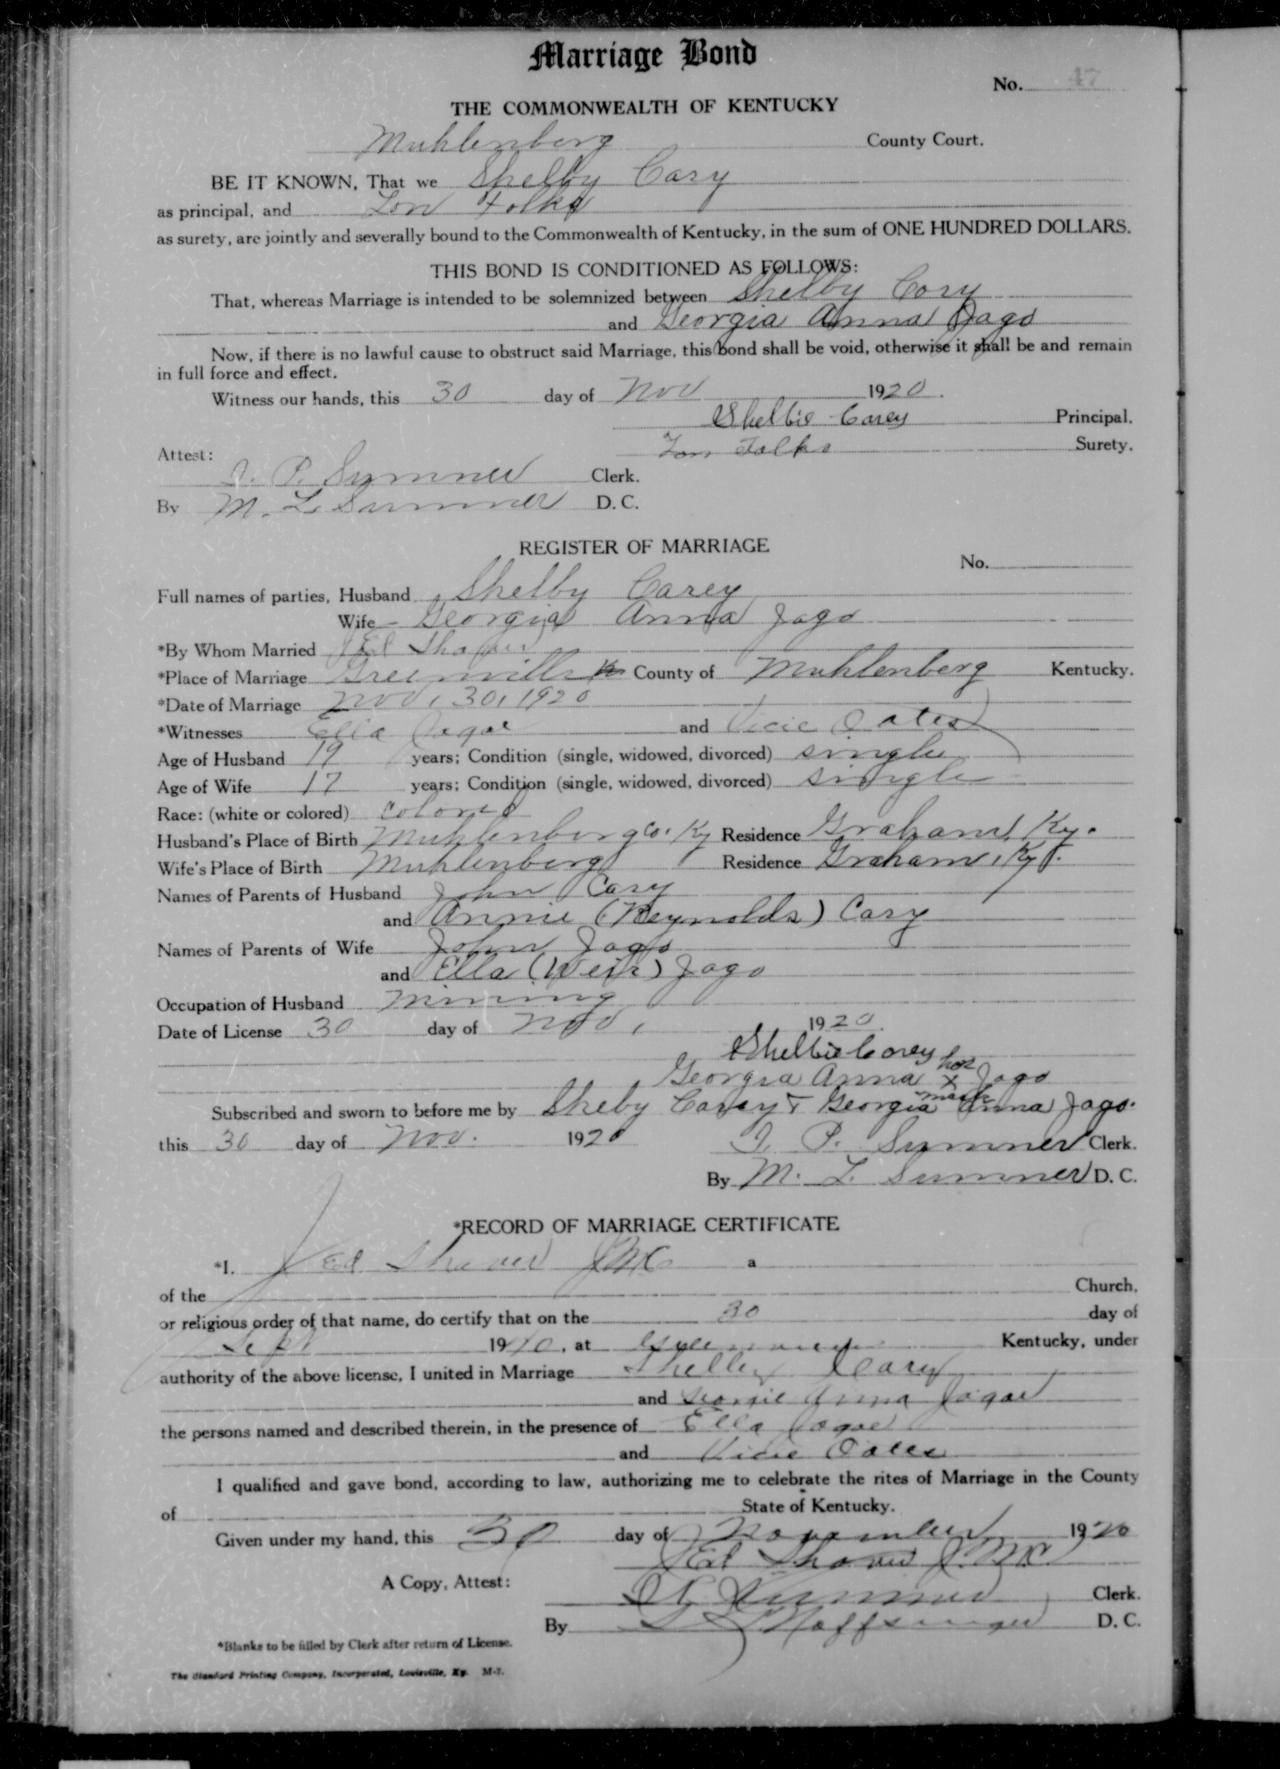 Marriage Bond
No. 47
THE COMMONWEALTH OF KENTUCKY
Muhlenberg County Court.
BE IT KNOWN, That we Shelby Cary
as principal, and Lon Folks
as surety, are jointly and severally bound to the Commonwealth of Kentucky, in the sum of ONE HUNDRED DOLLARS.
THIS BOND IS CONDITIONED AS FOLLOWS:
That, whereas Marriage is intended to be solemnized between Shelby Cory
and Georgia Anna Jago
Now, if there is no lawful cause to obstruct said Marriage, this bond shall be void, otherwise it shall be and remain
in full force and effect.
Witness our hands, this 30 day of Nov 1920.
Shelbie Carey Principal.
Lon Folks Surety.
Attest:
P. Sumner Clerk.
By M. L. Sumner D. C.
REGISTER OF MARRIAGE
No.
Full names of parties, Husband Shelby Carey
Wife Georgia Anna Jago
*By Whom Married Ed Shaver
*Place of Marriage Greenville Ky County of Muhlenberg Kentucky.
*Date of Marriage Nov, 30, 1920
*Witnesses Ella Jagoe and Vicie Oates
Age of Husband 19 years; Condition (single, widowed, divorced) single
Age of Wife 17 years; Condition (single, widowed, divorced) single
Race: (white or colored) colored
Husband's Place of Birth Muhlenberg Co. Ky Residence Graham, Ky.
Wife's Place of Birth Muhlenberg Residence Graham, Ky.
Names of Parents of Husband John Cary
and Annie (Reynolds) Cary
Names of Parents of Wife John Jago
and Ella (Weir) Jago
Occupation of Husband Mining
Date of License 30 day of Nov, 1920.
Shelbie Corey
Georgia Anna her x mark Jago
Subscribed and sworn to before me by Sheby Carey & Georgia Anna Jago.
this 30 day of Nov. 1920
P. Sumner Clerk.
By M. L. Sumner D. C.
*RECORD OF MARRIAGE CERTIFICATE
*I, Ed Shaver JMC a
of the Church,
or religious order of that name, do certify that on the 30 day of
Sept 1920, at Greenville Kentucky, under
authority of the above license, I united in Marriage Shelby Cary
and Georgie Anna Jagoe
the persons named and described therein, in the presence of Ella Jagoe
and Vicie Oates
I qualified and gave bond, according to law, authorizing me to celebrate the rites of Marriage in the County
of State of Kentucky.
Given under my hand, this 30 day of November 1920
Ed Shaver
A Copy, Attest: Sumner Clerk.
By D. C.
*Blanks to be filled by Clerk after return of License.
The Standard Printing Company, Incorporated, Louisville, Ky. M-7.